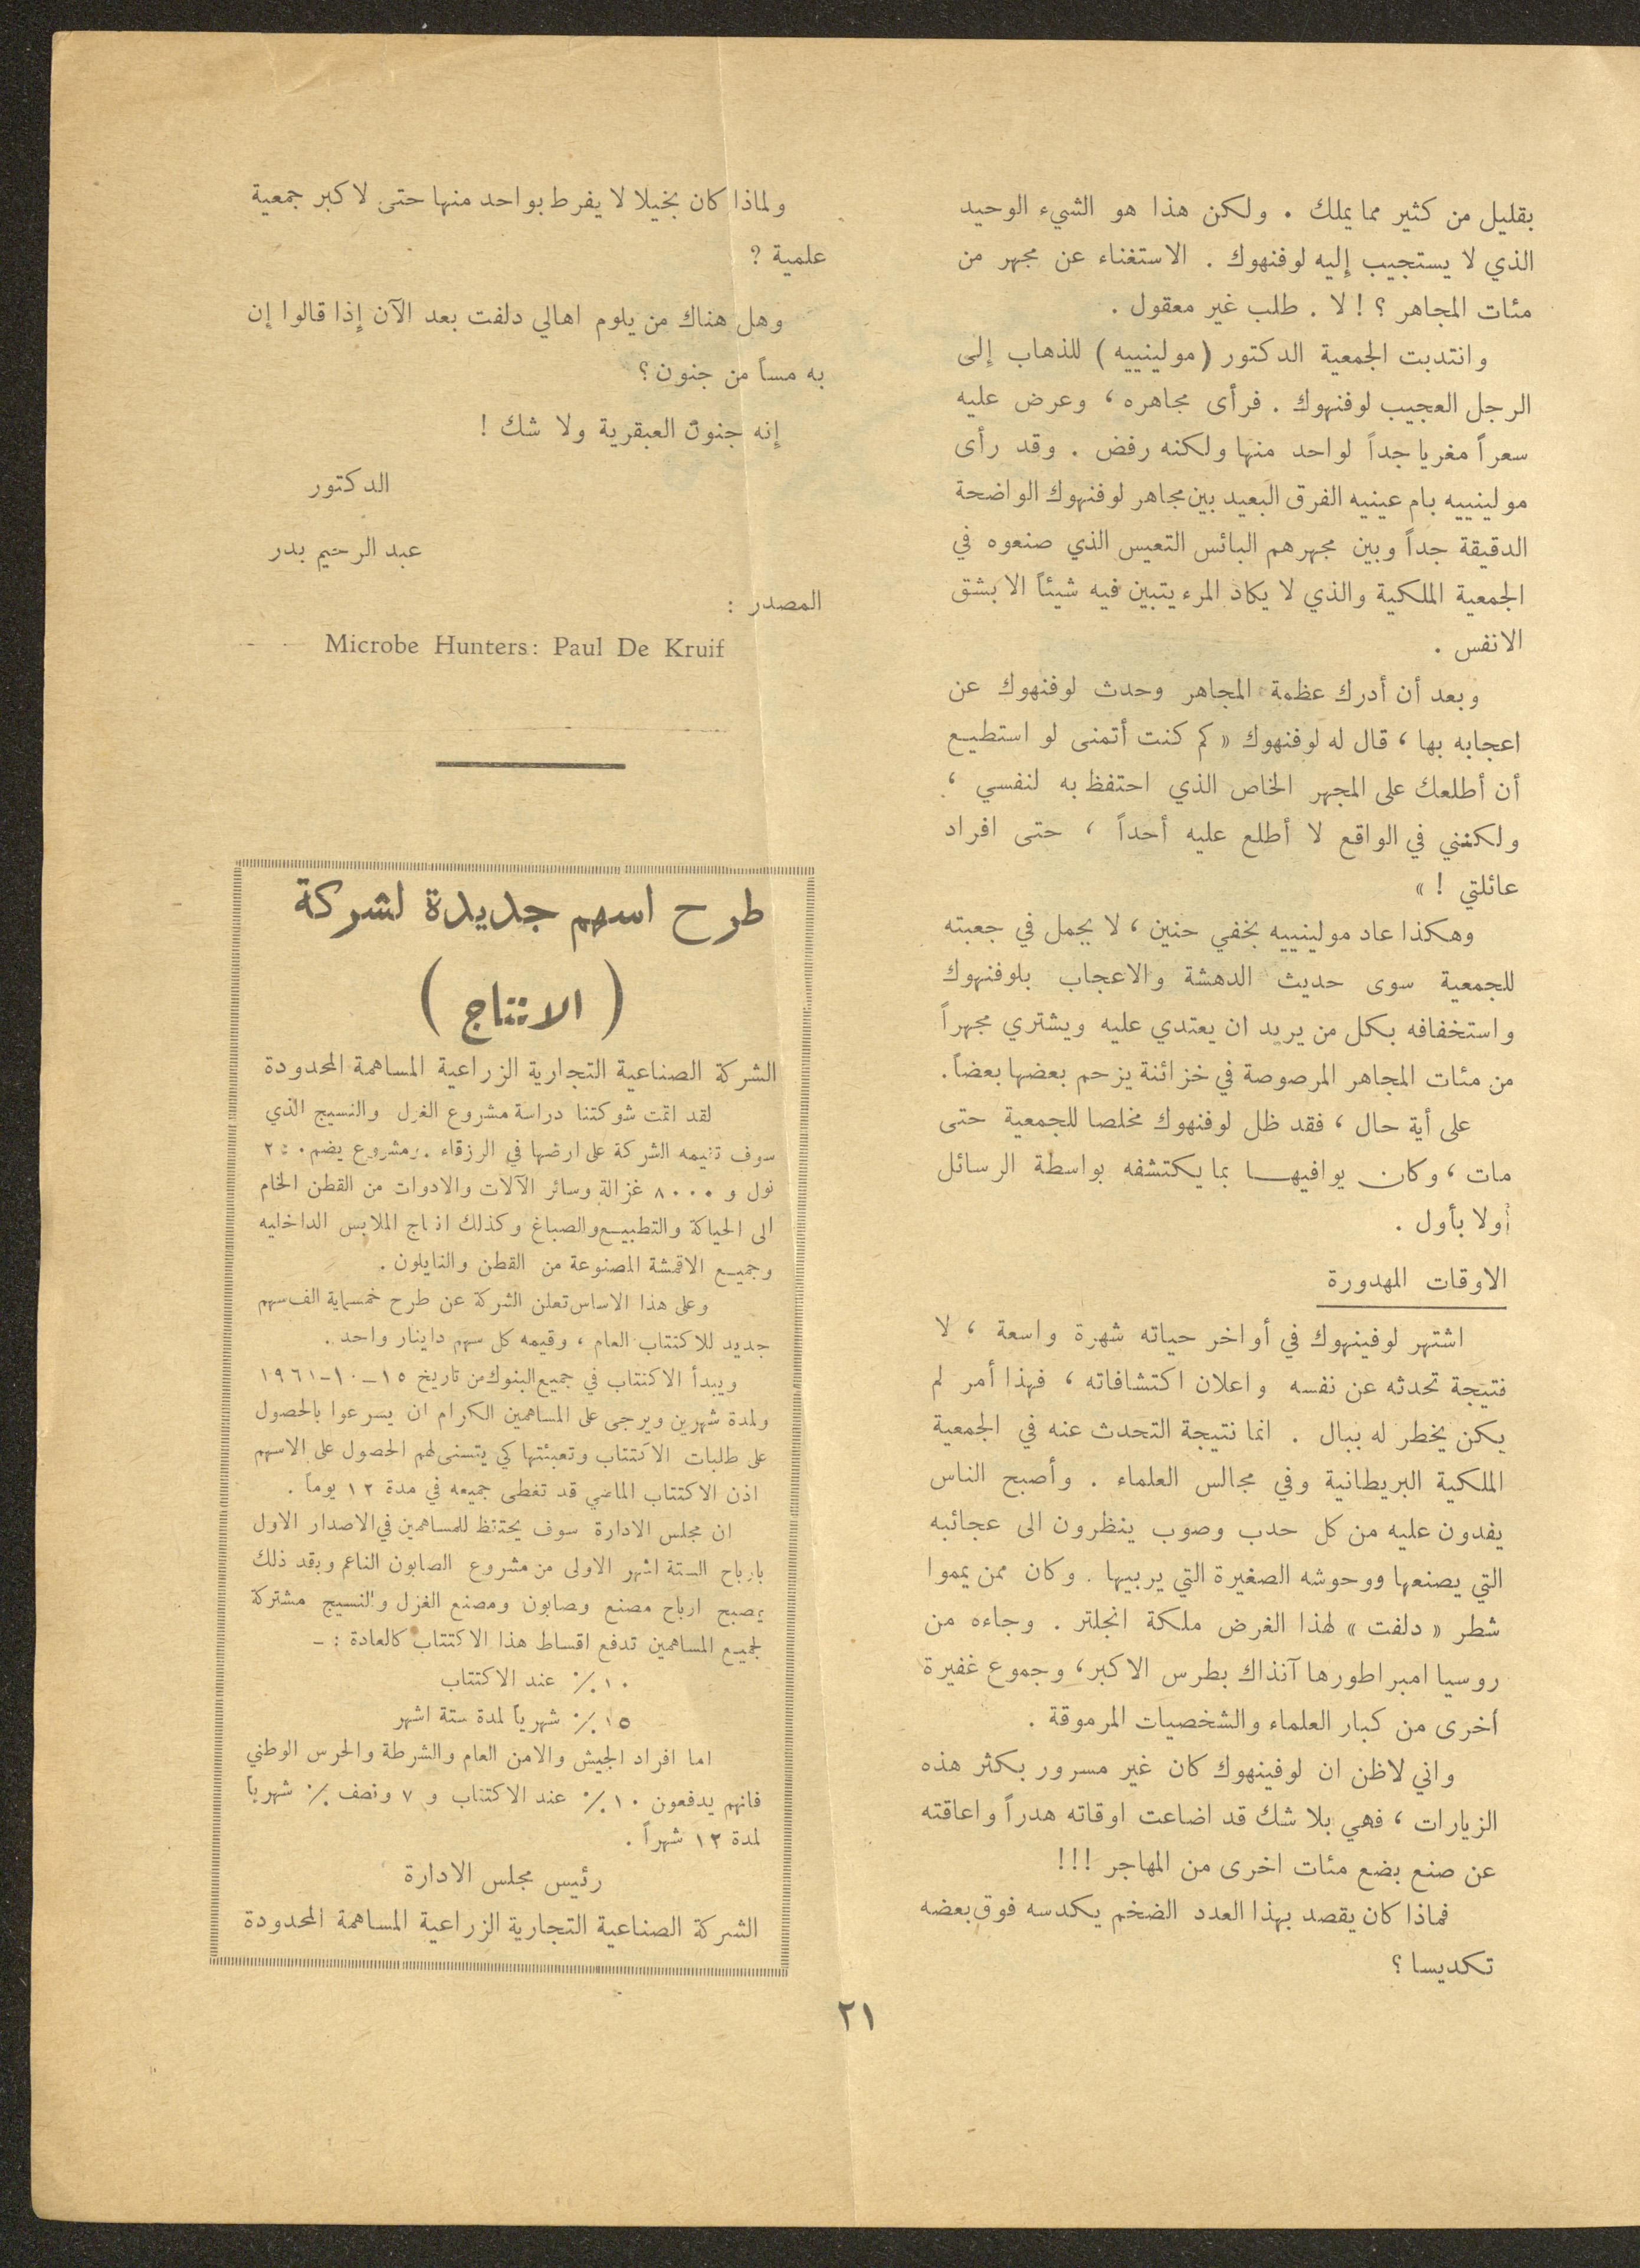 بقليل من كثير مما يملك . ولكن هذا هو الشيء الوحيد
الذي لا يستجيب إليه لوفنهوك . الاستغناء عن مجهر من
مئات المجاهر ؟ ! لا . طلب غير معقول .
وانتدبت الجمعية الدكتور ( مولينييه ) للذهاب إلى
الرجل العجيب لوفنهوك . فرأى مجاهره ، وعرض عليه
سعراً مغريا جداً لواحد منها ولكنه رفض . وقد رأى
مولينييه بام عينيه الفرق البعيد بين مجاهر لوفنهوك الواضحة
الدقيقة جداً وبين مجهرهم البائس التعيس الذي صنعوه في
الجمعية الملكية والذي لا يكاد المرء يتبين فيه شيئاً الا بشق
الانفس .
وبعد أن أدرك عظمة المجاهر وحدث لوفنهوك عن
اعجابه بها ، قال له لوفنهوك « كم كنت أتمنى لو استطيع
أن أطلعك على المجهر الخاص الذي احتفظ به لنفسي ،
ولكنني في الواقع لا أطلع عليه أحداً ، حتى افراد
عائلتي ! »
وهكذا عاد مولينييه بخفي حنين ، لا يحمل في جعبته
للجمعية سوى حديث الدهشة والاعجاب بلوفنهوك
واستخفافه بكل من يريد ان يعتدي عليه ويشتري مجهراً
من مئات المجاهر المرصوصة في خزائنة يزحم بعضها بعضاً .
على أية حال ، فقد ظل لوفنهوك مخلصا للجمعية حتى
مات ، وكان يوافيها بما يكتشفه بواسطة الرسائل
أولا بأول .
الاوقات المهدورة
اشتهر لوفينهوك في أواخر حياته شهرة واسعة ، لا
نتيجة تحدثه عن نفسه واعلان اكتشافاته ، فهذا أمر لم
يكن يخطر له ببال . انما نتيجة التحدث عنه في الجمعية
الملكية البريطانية وفي مجالس العلماء . وأصبح الناس
يفدون عليه من كل حدب وصوب ينظرون الى عجائبه
التي يصنعها ووحوشه الصغيرة التي يربيها . وكان ممن يمموا
شطر « دلفت » لهذا الغرض ملكة انجلتر . وجاءه من
روسيا امبراطورها آنذاك بطرس الاكبر ، وجموع غفيرة
أخرى من كبار العلماء والشخصيات المرموقة .
واني لاظن ان لوفينهوك كان غير مسرور بكثر هذه
الزيارات ، فهي بلا شك قد اضاعت اوقاته هدراً واعاقته
عن صنع بضع مئات اخرى من المهاجر ! ! !
فماذا كان يقصد بهذا العدد الضخم يكدسه فوق بعضه
تكديسا ؟
ولماذا كان بخيلا لا يفرط بواحد منها حتى لاكبر جمعية
علمية ?
وهل هناك من يلوم اهالي دلفت بعد الآن إذا قالوا إن
به مساً من جنون ؟
إنه جنون العبقرية ولا شك !
الدكتور
عبد الرحيم بدر
المصدر :
Microbe Hunters: Paul De Kruif
طرح اسهم جديدة لشركة
( الانتاج )
الشركة الصناعية التجارية الزراعية المساهمة المحدودة
لقد اتمت شوكتنا دراسة مشروع الغزل والنسيج الذي
سوف تقيمه الشركة على ارضها في الرزقاء . ومشروع يضم
نول و ٨٠٠٠ غزالة وسائر الآلات والادوات من القطن الخام
الى الحياكة والتطبيع والصباغ وكذلك انتاج الملابس الداخليه
وجميع الاقمشة المصنوعة من القطن والنايلون .
وعلى هذا الاساس تعلن الشركة عن طرح خمسماية الف سهم
جديد للاكتتاب العام ، وقيمه كل سهم داينار واحد .
ويبدأ الاكتتاب في جميع البنوك من تاريخ ١٥-١٠-١٩٦١
ولمدة شهرين ويرجى على المساهمين الكرام ان يسرعوا بالحصول
على طلبات الاكتتاب وتعبئتها كي يتسنى لهم الحصول على الاسهم
اذن الاكتتاب الماضي قد تغطى جميعه في مدة ١٢ يوماً .
ان مجلس الادارة سوف يحتفظ للمساهمين في الاصدار الاول
بارباح الستة اشهر الاولى من مشروع الصابون الناعم وبقد ذلك
يصبح ارباح مصنع وصابون ومصنع الغزل والنسيج مشتركة
لجميع المساهمين تدفع اقساط هذا الاكتتاب كالعادة : -
١٠ ٪ عند الاكتتاب
١٥ ٪ شهرياً لمدة ستة اشهر
اما افراد الجيش والامن العام والشرطة والحرس الوطني
فانهم يدفعون ١٠ ٪ عند الاكتتاب و ٧ ونصف ٪ شهرياً
لمدة ١٢ شهراً .
رئيس مجلس الادارة
الشركة الصناعية التجارية الزراعية المساهمة المحدودة
٢١